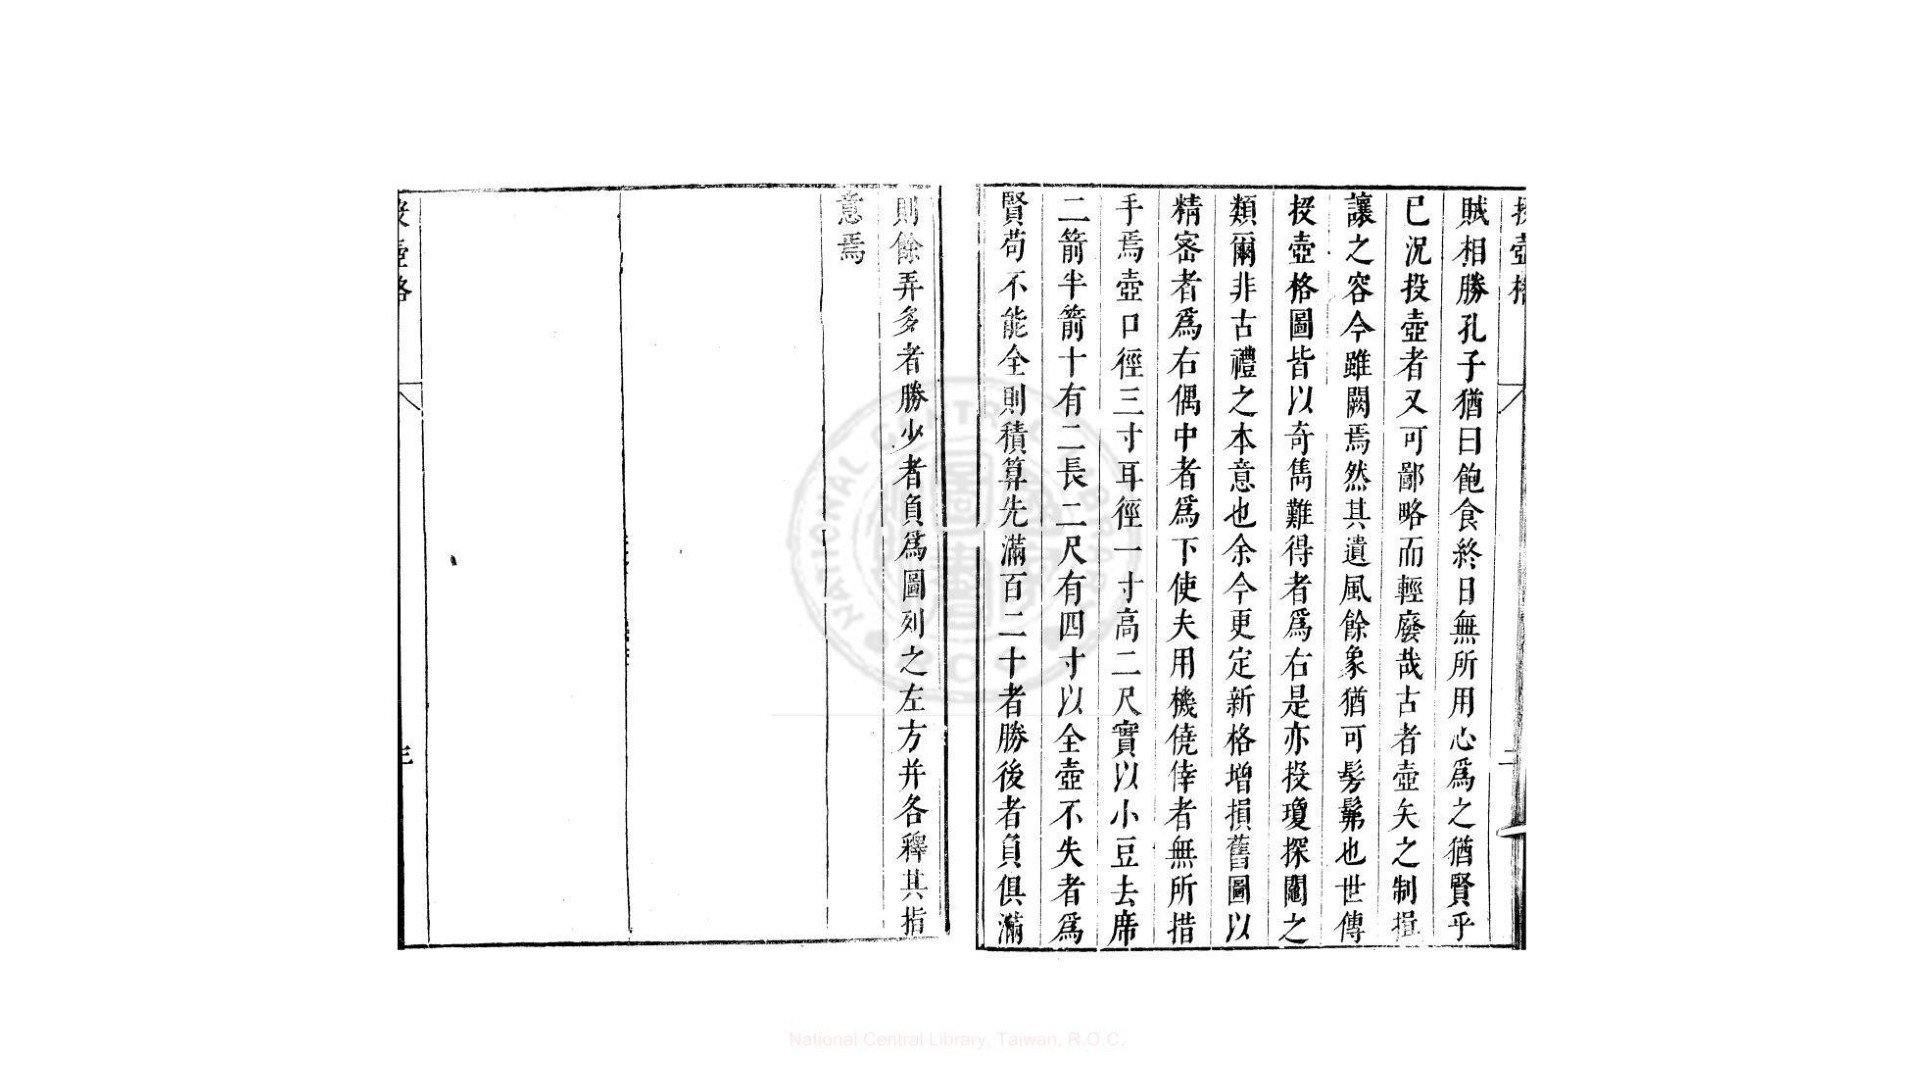 投壺格
二
賊相勝孔子猶曰飽食終日無所用心爲之猶賢乎
已況投壺者又可鄙略而輕廢哉古者壺矢之制揖
讓之容今雖闕焉然其遺風餘象猶可髣髴也世傳
投壺格圖皆以奇雋難得者爲右是亦投瓊探鬮之
類爾非古禮之本意也余今更定新格增損舊圖以
精密者爲右偶中者爲下使夫用機僥倖者無所措
手焉壺口徑三寸耳徑一寸高二尺實以小豆去席
二箭半箭十有二長二尺有四寸以全壺不失者爲
賢苟不能全則積算先滿百二十者勝後者負俱滿
則餘弄多者勝少者負爲圖列之左方并各釋其指
意焉
投壺格
三
NATIONAL CENTRAL LIBRARY
National Central Library, Taiwan, R.O.C.